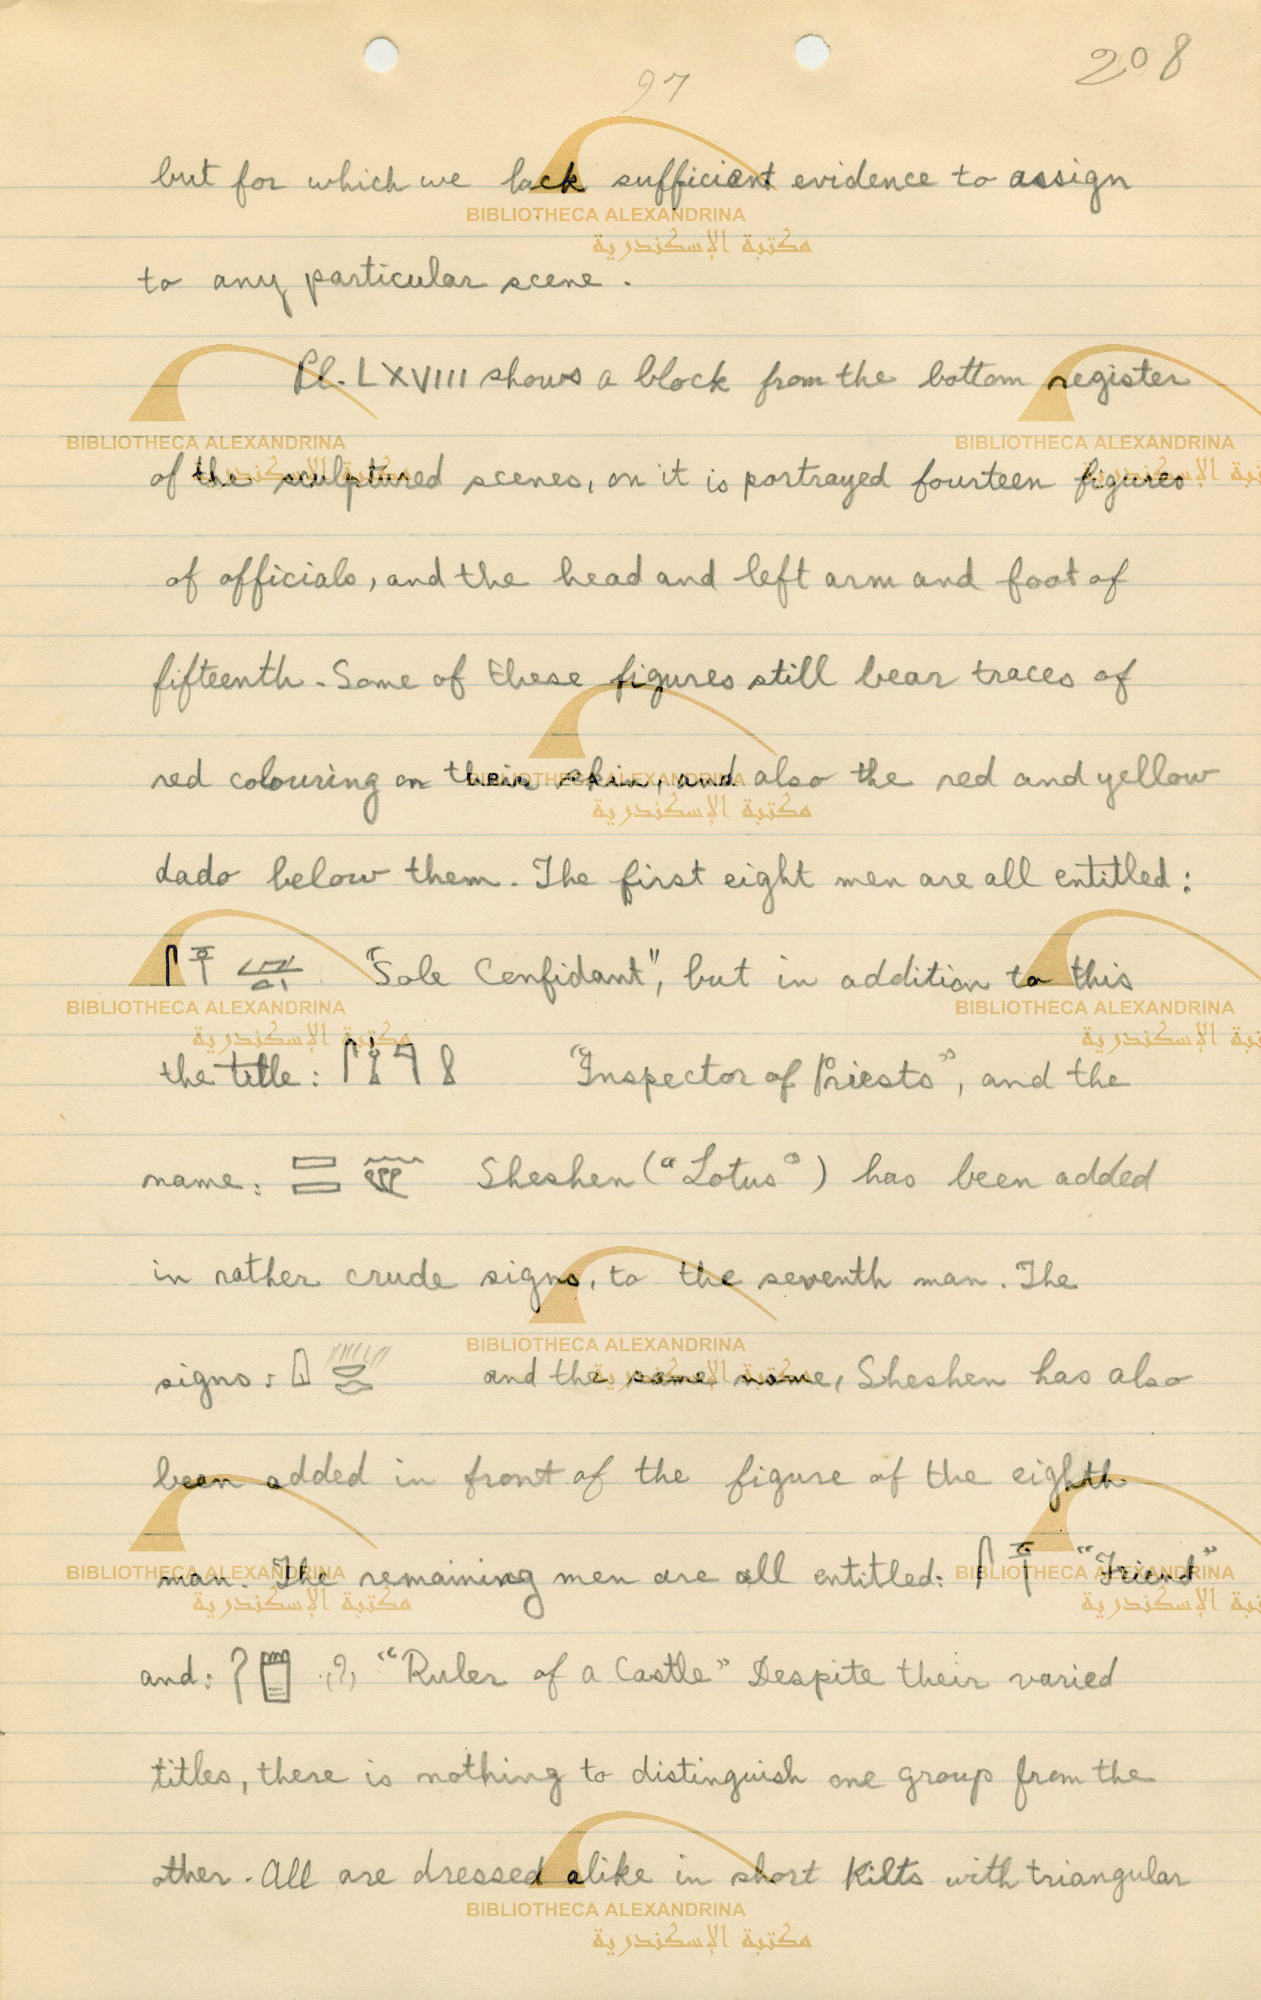 97
208
but for which we lack sufficient evidence to assign
to any particular scene.
Pl. LXVIII shows a block from the bottom register
of the sculptured scenes, on it is portrayed fourteen figures
of officials, and the head and left arm and foot of
fifteenth. Some of these figures still bear traces of
red colouring on their skin, and also the red and yellow
dado below them. The first eight men are all entitled:
"Sole Confidant", but in addition to this
the title: "Inspector of Priests", and the
name: Sheshen ("Lotus") has been added
in rather crude signs, to the seventh man. The
signs: and the same name, Sheshen has also
been added in front of the figure of the eighth
man. The remaining men are all entitled: "Friend"
and: (?) "Ruler of a Castle" Despite their varied
titles, there is nothing to distinguish one group from the
other. All are dressed alike in short kilts with triangular
BIBLIOTHECA ALEXANDRINA
مكتبة الإسكندرية